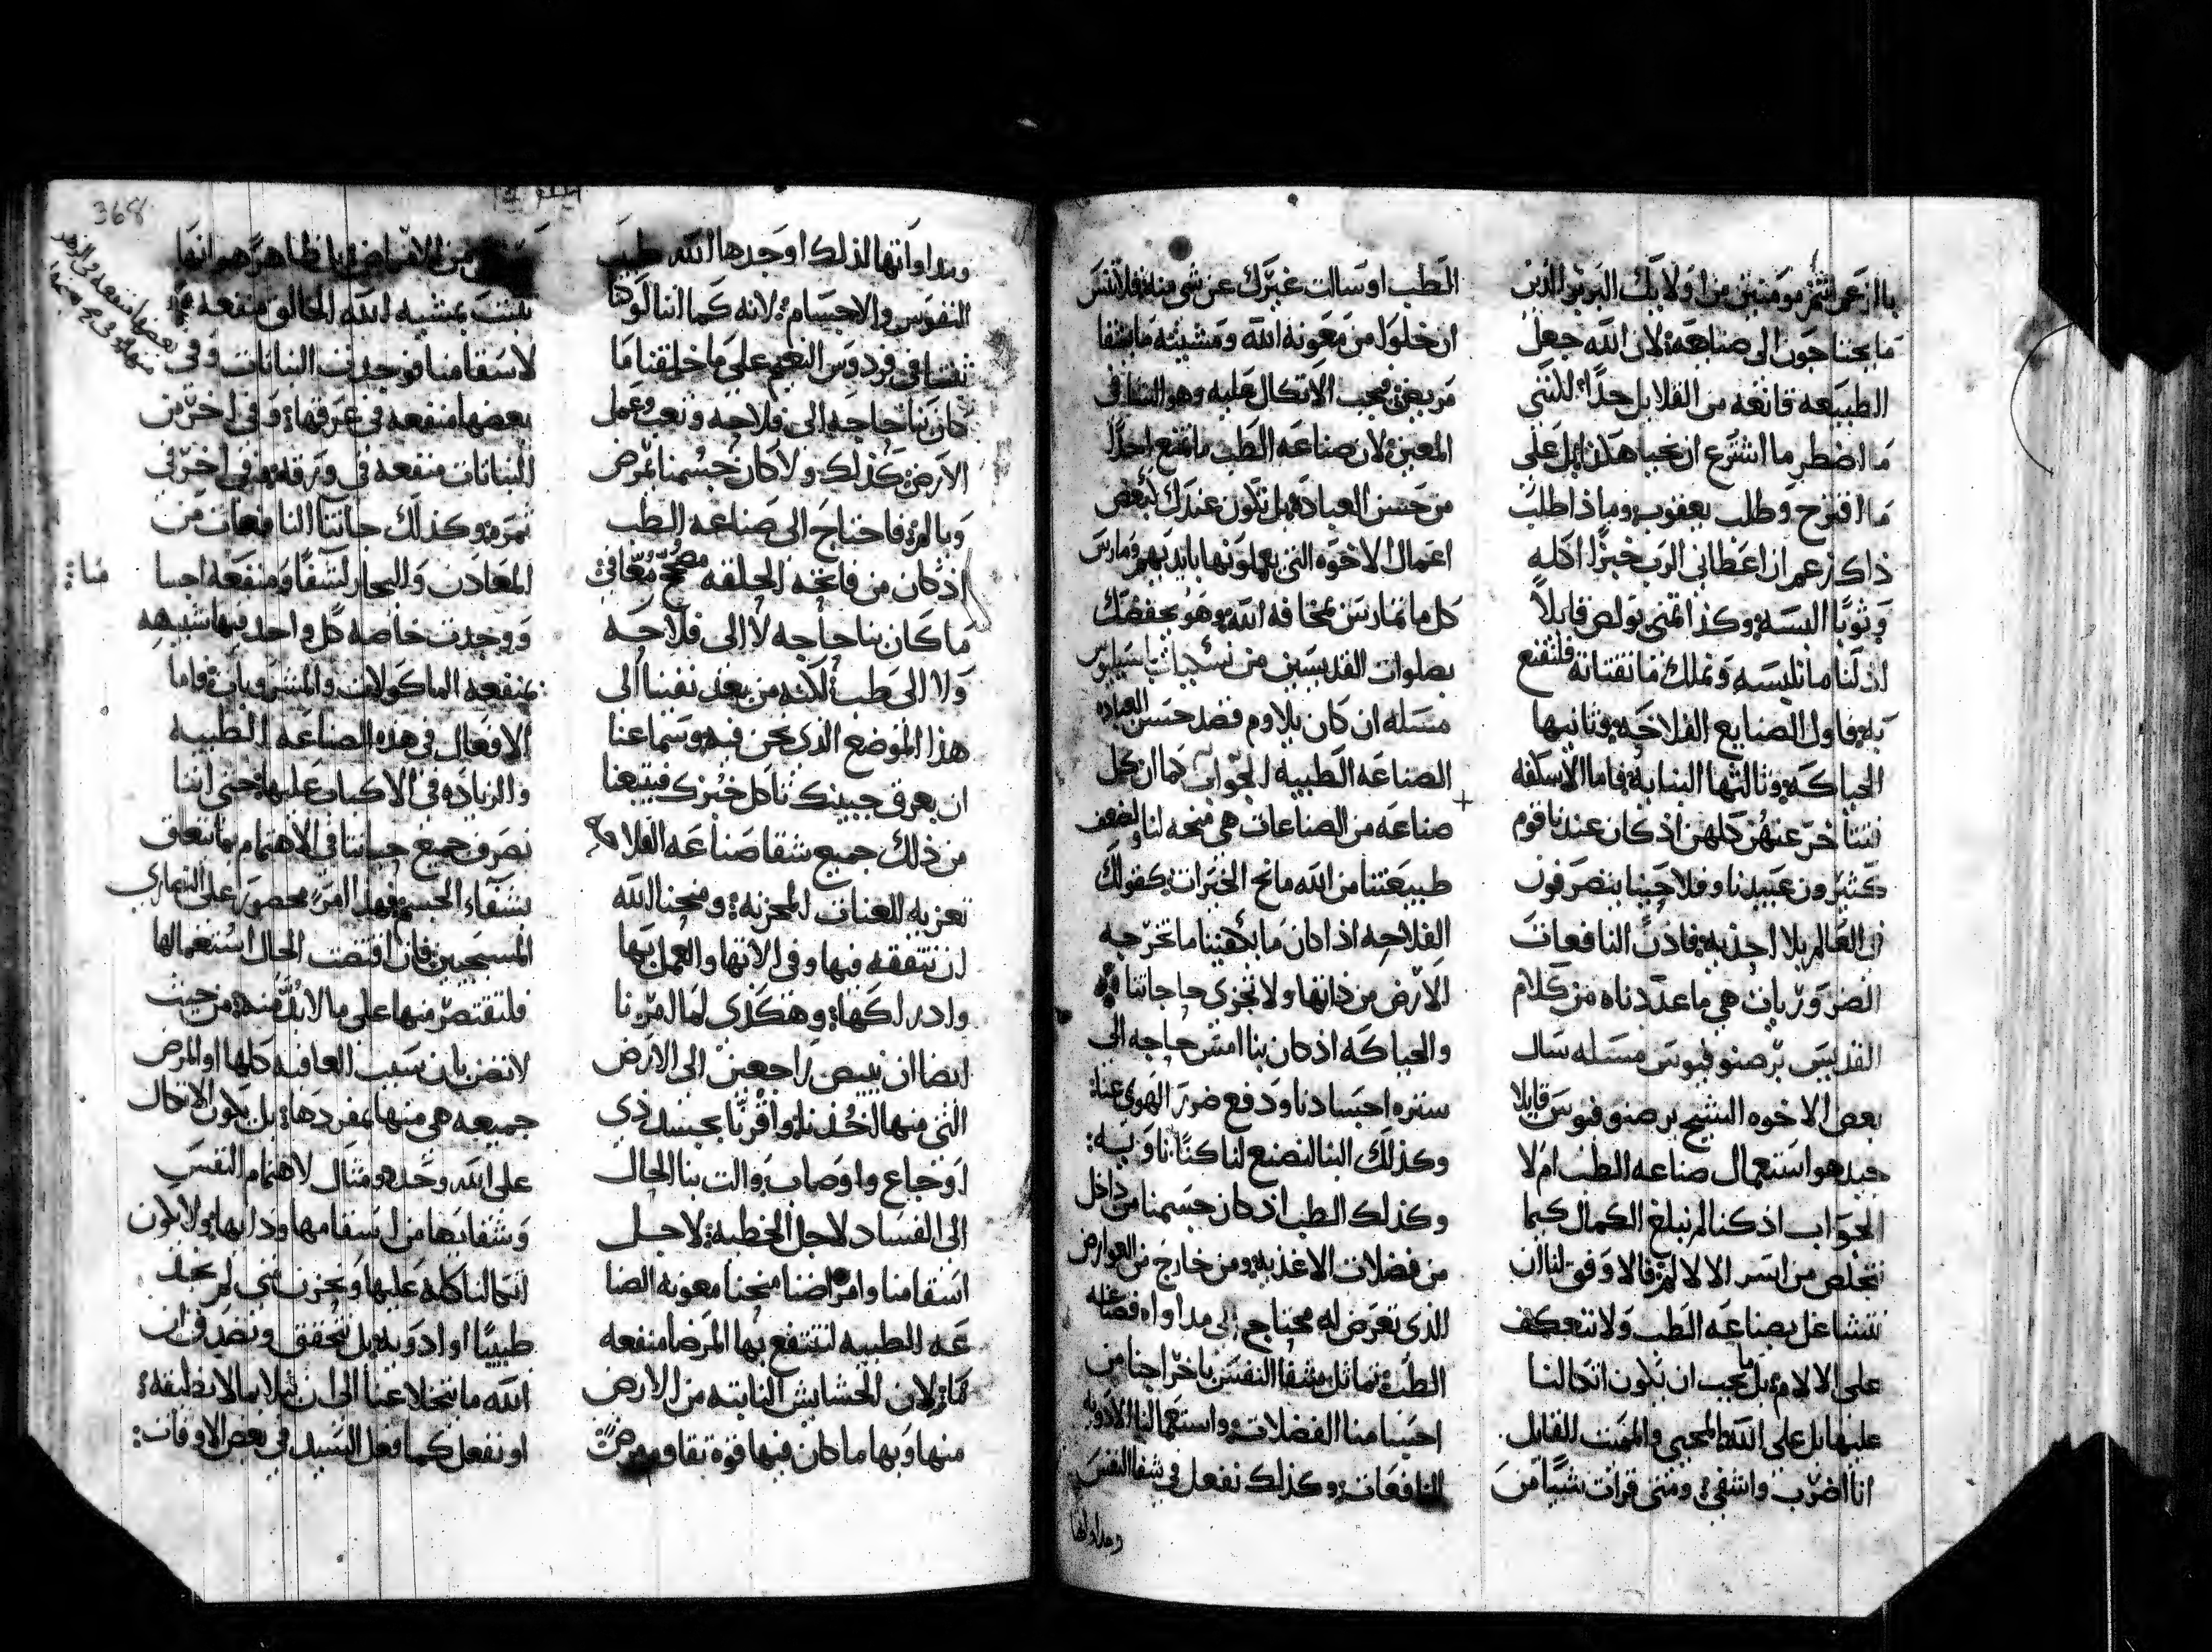 ما يحتاجون الى صناعة لان الله جعل
الطبيعه قانعه من القلايل جدًا لكننى
ما اضطر ما اشترع ان نحيا هكذا بل على
ما اقترح وطلب يعقوب وماذا طلب
ذاك زعم ان اعطانى الرب خبزًا اكله
وثوبًا البسه وكذا اتمنى بولص قايلاً
اذ لنا ما نلبسه ونملك ما نقتاته فلنقنع
به فاول الصنايع الفلاحه وثانيها
الحياكه وثالثها البنايه فاما الاسكفه
تتاخر عنهن كلهن اذ كان عندنا قوم
كثيرون عبيدنا وفلاحينا يتصرفون
فى العالم بلا احذيه فاذن النافعات
الضروريات هى ما عددناه من كلام
القديس برصنوفيوس مسله سال
بعض الاخوه الشيخ برصنوفيوس قايلا
جيد هو استعمال صناعه الطب ام لا
الجواب اذ كنا لم نبلغ الكمال كيما
نتخلص من اسر الالام فالاوفق لنا ان
نتشاغل بصناعه الطب ولا نتعكف
على الالام بل ما يجب ان يكون اتكالنا
عليها بل على الله المحيى والمميت القايل
انا اضرب واشفى ومتى قرات شيًا من
الطب او سالت غيرك عن شى منه فلا تنس
ان خلوا من معونة الله ومشيته ما يشفا
مريض فيجب الاتكال عليه وهو الشافى
المعين لان صناعه الطب ما تمنع احدًا
من حسن العباده بل تكون عندك كبعض
اعمال الاخوه التى يعملونها بايديهم ومارس
كل ما تمارس بمخافه الله وهو يحفظك
بصلوات القديسين من
مسله ان كان يلاوم قصد حسن العباده
الصناعه الطبيه الجواب كما ان كل
صناعه من الصناعات هى منحه لنا ولضعف
طبيعتنا من الله مانح الخيرات كقولك
الفلاحه اذا كان ما يكفينا ما تخرجه
الارض من ذاتها ولا تجزى حاجاتنا
والحياكه اذ كان بنا امس حاجه الى
ستره اجسادنا ودفع ضرر الهوى عنا
وكذلك البنا لنصنع لنا كنًا ناويه
وكذلك الطب اذ كان جسمنا من داخل
من فضلات الاغذيه ومن خارج من العوارض
الذى تعرض له محتاج الى مداواه فصناعه
الطب تماثل شفا النفس باخراجنا من
اجسامنا الفضلات واستعمالنا الادويه
النافعات وكذلك نفعل فى شفا النفس
ومداواتها
368
ومداواتها لذلك اوجدها الله طبيب
النفوس والاجسام لانه كما اننا لو
فى فردوس النعيم على ما خلقنا ما
كان بنا حاجه الى فلاحه وتعب وعمل
الارض كذلك ولا كان جسمنا يمرض
ويالم فاحتاج الى صناعه الطب
اذ كان من فاتحه الخلقه مصحح معافى
ما كان بنا حاجه لا الى فلاحه
ولا الى طب لانه من بعد نفينا الى
هذا الموضع الذى نحن فيه وسماعنا
ان بعرق جبينك تاكل خبزك
من ذلك جميع شقا صناعه الفلاحه
تعزيه للعنات المحزنه ومنحنا الله
ان نتفقه فيها وفى الاتها والعمل بها
وادراكها وهكذى لما امرنا
ايضا ان نبيض راجعين الى الارض
التى منها اخذنا واقرنا بجسد ذى
اوجاع واوصاب والت بنا الحال
الى الفساد لاجل الخطيه لاجل
اسقامنا وامراضنا منحنا معونه الصنا
عه الطبيه لتنتفع بها المرضا منفعه
ما لان الحشايش النابته من الارض
منها وبها ما كان فيها قوة تقاوم مرضًا
من الامراض
نبتت بمشيه الله الخالق منفعه
لاسقامنا فوجدت النباتات وفى
بعضها منفعه فى عرقها وفى اخر من
النباتات منفعه فى ورقه وفى اخر فى
ثمره وكذلك جاتنا النافعات من
المعادن والبحار لشفا ومنفعه اجسا
منا
ووجدت خاصه كل واحد فيها شبيهه
بمنفعه الماكولات والمشروبات فاما
الافعال فى هذه الصناعه الطبيه
والزياده فى الاكباب عليها حتى اننا
نصرف جميع حياتنا فى الاهتمام بما يتعلق
بشفاء الجسم فهذا امر محصور على النصارى
المسيحيين فان اقتضت الحال استعمالها
فلنقتصر منها على ما لا بد منه من حيث
لا نضن بان سبب العافيه كلها او المرض
جميعه هى منها بمفردها بل يكون الاتكال
على الله وحده ومثال لاهتمام النفس
وشفايها من اسقامها ودايها ولا يكون
اتكالنا كله عليها ونحزن متى لم نجد
طبيبًا او ادويه بل نتحقق ونصدق ان
الله ما يتخلا عنا الى ان نبتلا بما لا نطيقه
او نفعل كما فعل السيد فى بعض الاوقات
بعضها منفعه فى الزهر